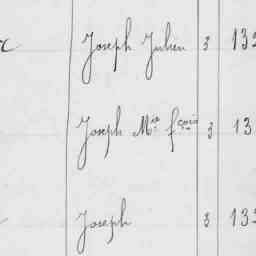 Joseph Julien 3 13
Joseph Mie fçois 3 13
Joseph 3 13